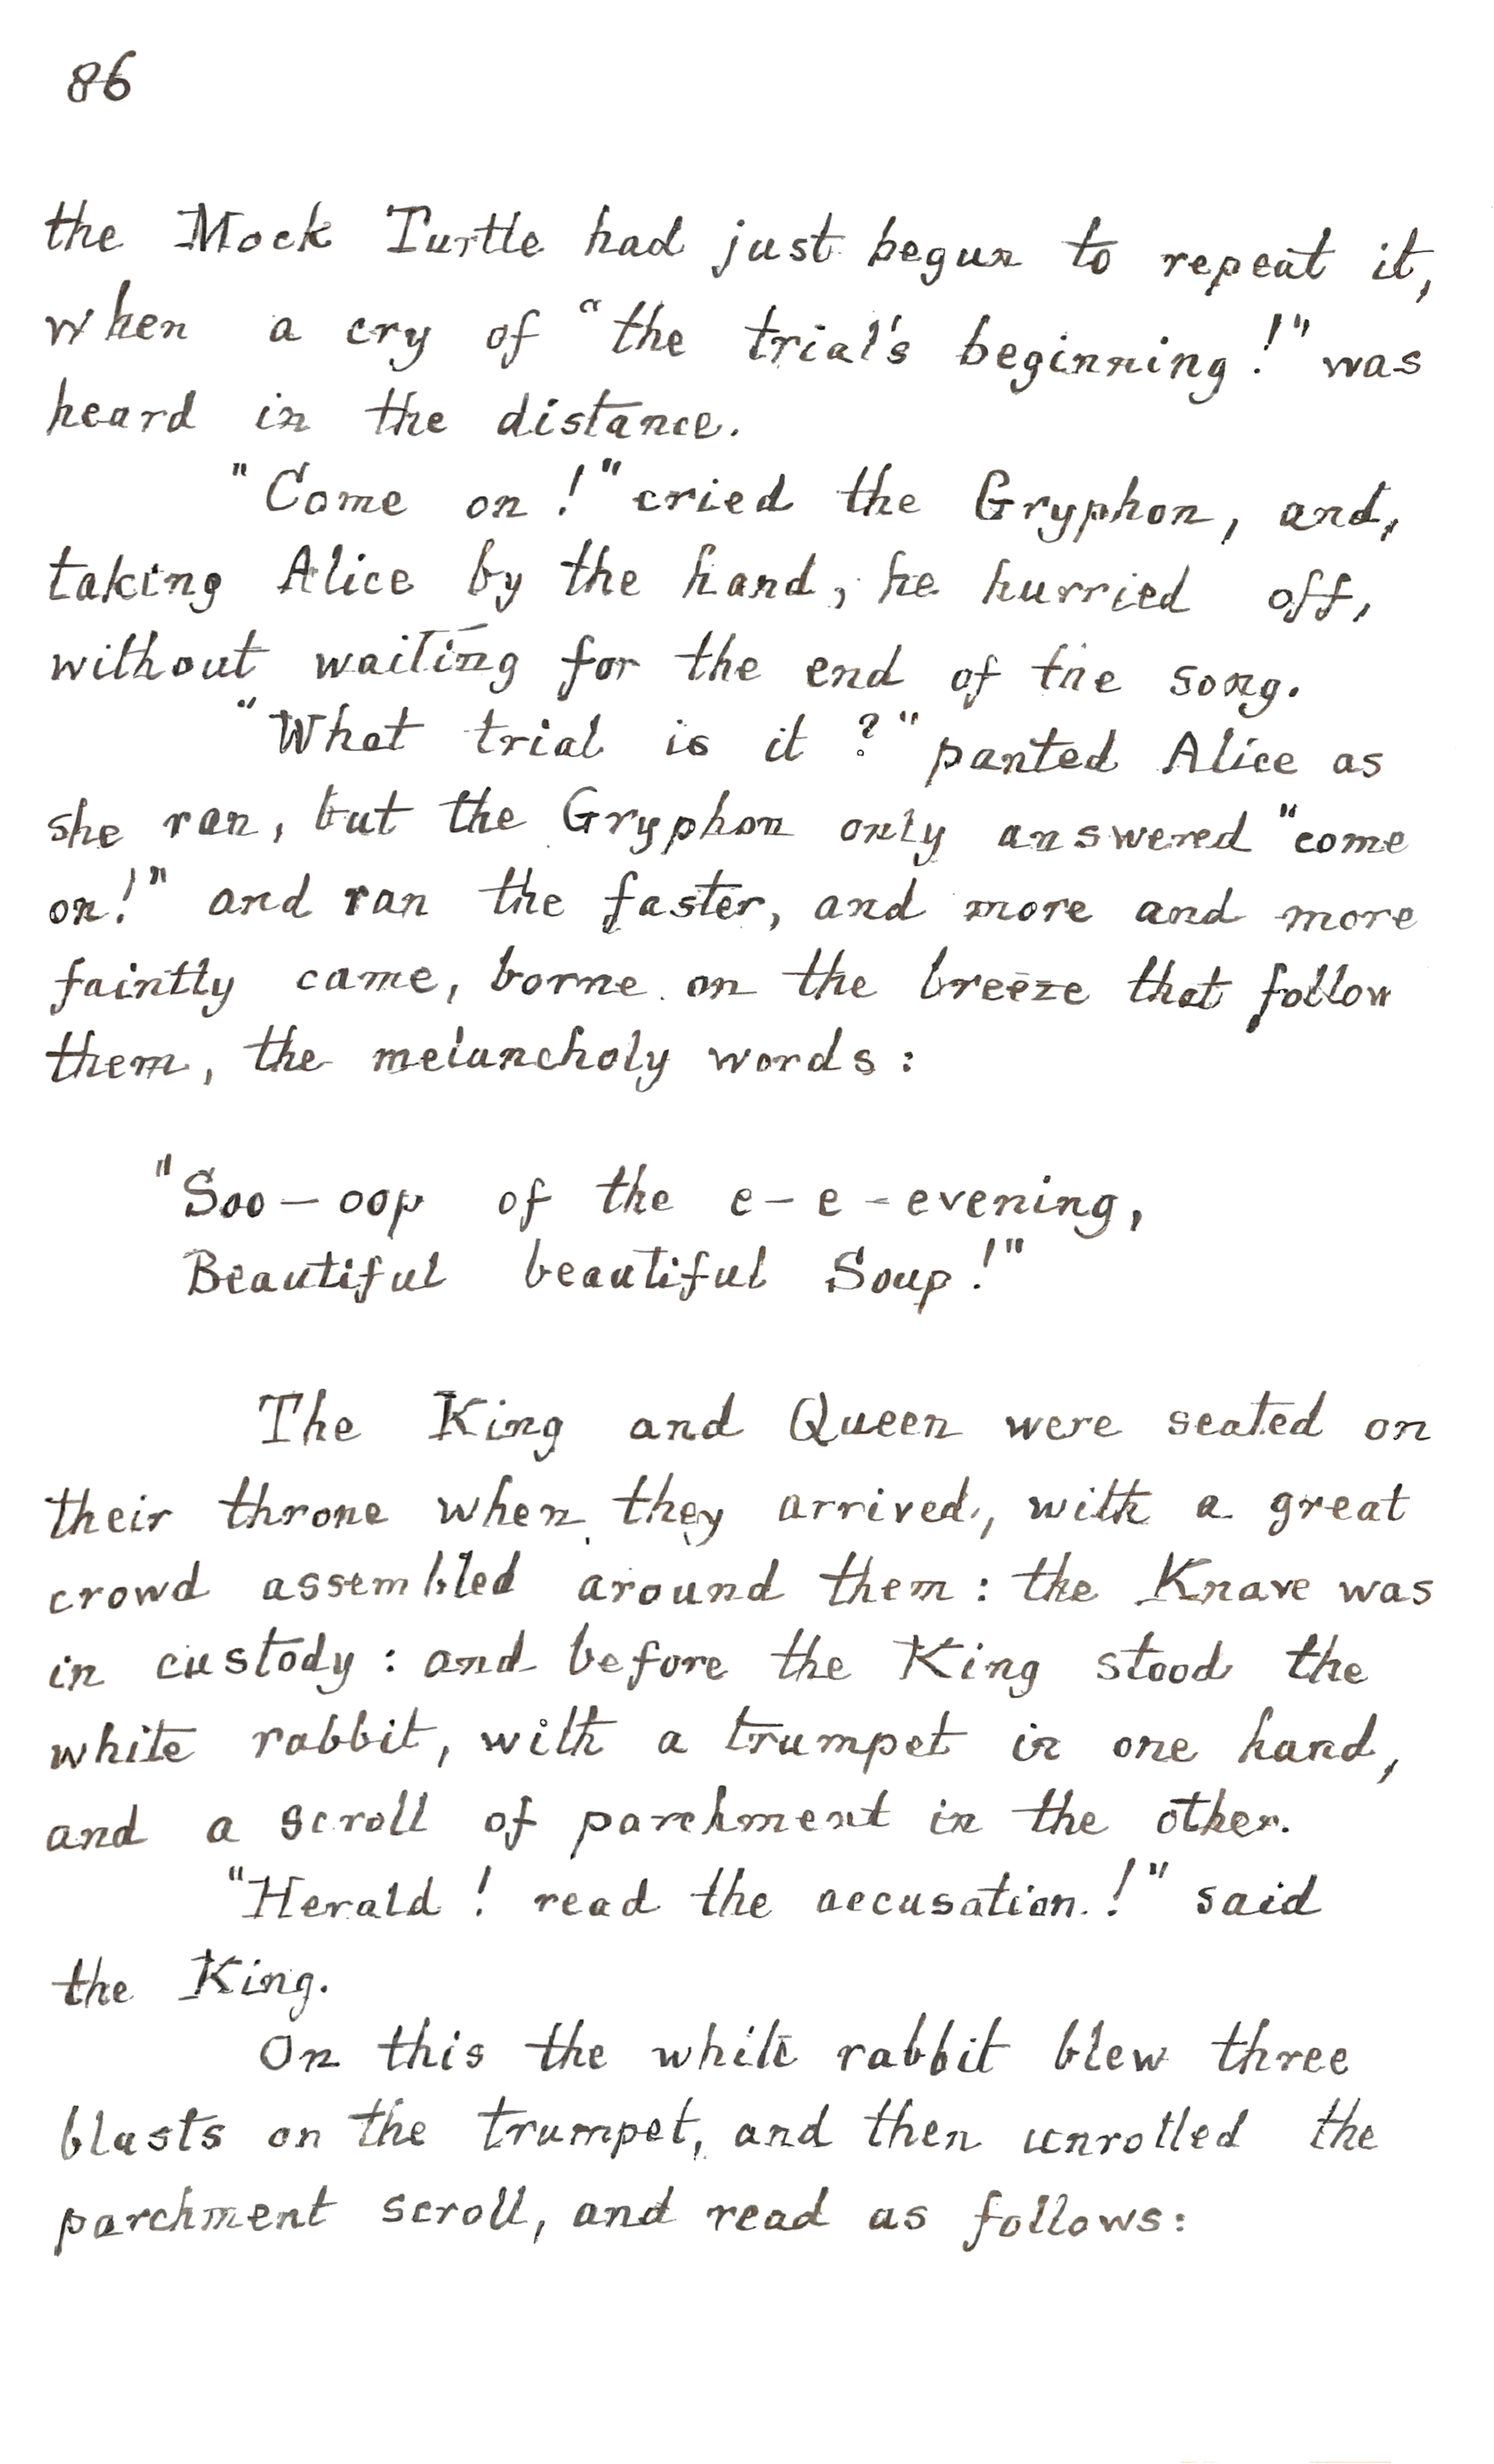 86
the Mock Turtle had just begun to repeat it,
when a cry of "the trial's beginning!" was
heard in the distance.
"Come on!" cried the Gryphon, and,
taking Alice by the hand, he hurried off,
without waiting for the end of the song.
"What trial is it?" panted Alice as
she ran, but the Gryphon only answered "come
on!" and ran the faster, and more and more
faintly came, borne on the breeze that follow
them, the melancholy words:
"Soo—oop of the e—e—evening,
Beautiful beautiful Soup!"
The King and Queen were seated on
their throne when they arrived, with a great
crowd assembled around them: the Knave was
in custody: and before the King stood the
white rabbit, with a trumpet in one hand,
and a scroll of parchment in the other.
"Herald! read the accusation!" said
the King.
On this the white rabbit blew three
blasts on the trumpet, and then unrolled the
parchment scroll, and read as follows: